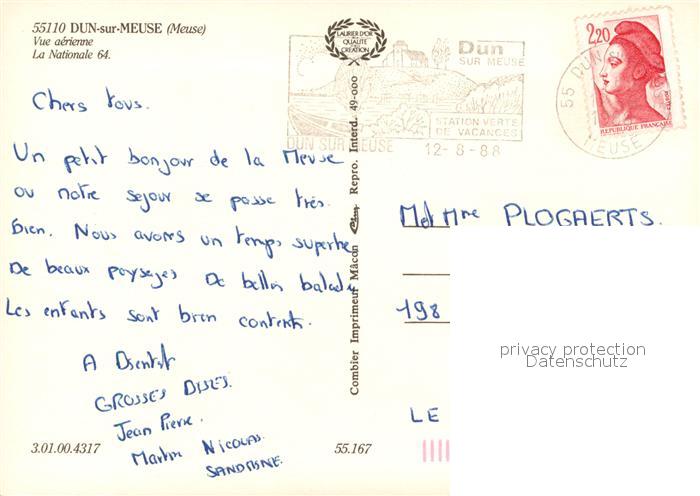 55110 DUN-sur-MEUSE (Meuse)
Vue aérienne
La Nationale 64.
LAURIER D'OR
DE LA
QUALITÉ
CRÉATION
Dun
SUR MEUSE
STATION VERTE
DE VACANCES
DUN SUR MEUSE
12-8-88
55 DUN
MEUSE
2,20
POSTES
REPUBLIQUE FRANÇAISE
Chers tous.
Un petit bonjour de la Meuse
ou notre sejour se passe très
bien. Nous avons un temps superbe
De beaux paysages De belles balades
Les enfants sont bien contents.
A Bientot
GROSSES BISES.
Jean Pierre.
Martine NICOLAS.
SANDRINE.
Combier Imprimeur Mâcon Repro. Interd. 49-000
M et Mme PLOGAERTS.
198
privacy protection
Datenschutz
LE
3.01.00.4317
55.167